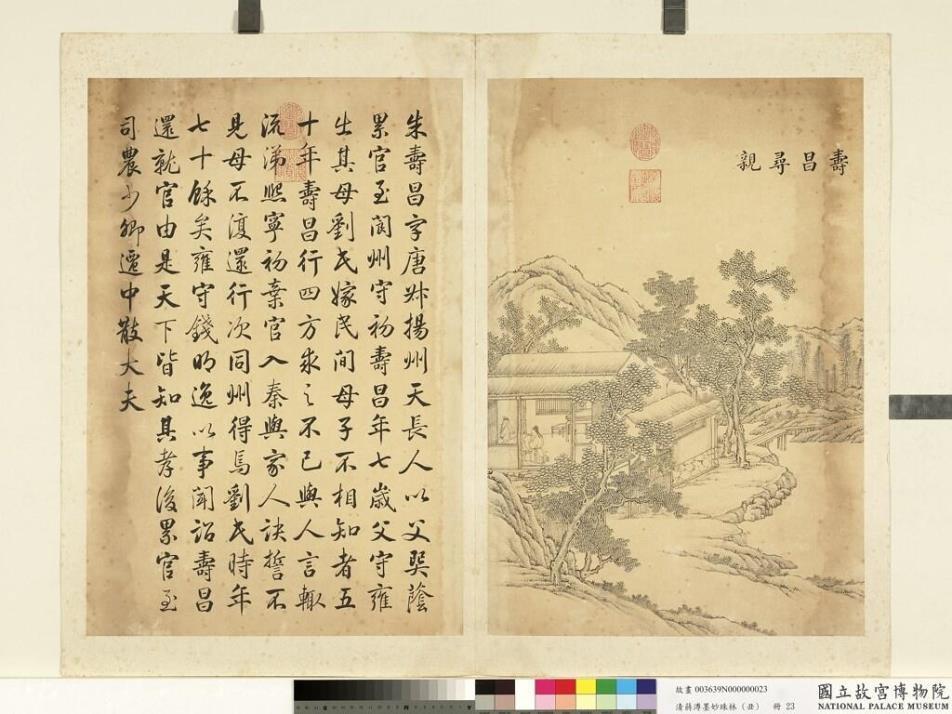 壽昌尋親
朱壽昌字唐叔揚州天長人以父巽蔭
累官至閬州守初壽昌年七歲父守雍
出其母劉氏嫁民間母子不相知者五
十年壽昌行四方求之不已與人言輒
流涕熙寧初棄官入秦與家人訣誓不
見母不復還行次同州得焉劉氏時年
七十餘矣雍守錢明逸以事聞詔壽昌
還就官由是天下皆知其孝後累官至
司農少卿遷中散大夫
故畫 003639N000000023
清蔣溥墨妙珠林（丑） 冊 23
國立故宮博物院
NATIONAL PALACE MUSEUM